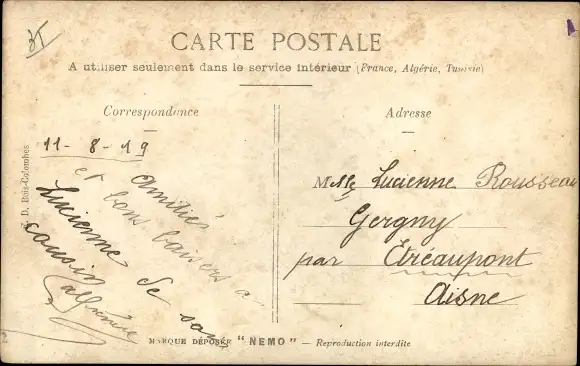 CARTE POSTALE
A utiliser seulement dans le service intérieur (France, Algérie, Tunisie)
Correspondance
11-8-19
Amitiés
et bons baisers a
Lucienne de son
cousin
Adresse
Melle Lucienne Rousseau
Gergny
par Etréaupont
Aisne
D. Bois-Colombes
MARQUE DÉPOSÉE "NEMO" — Reproduction interdite